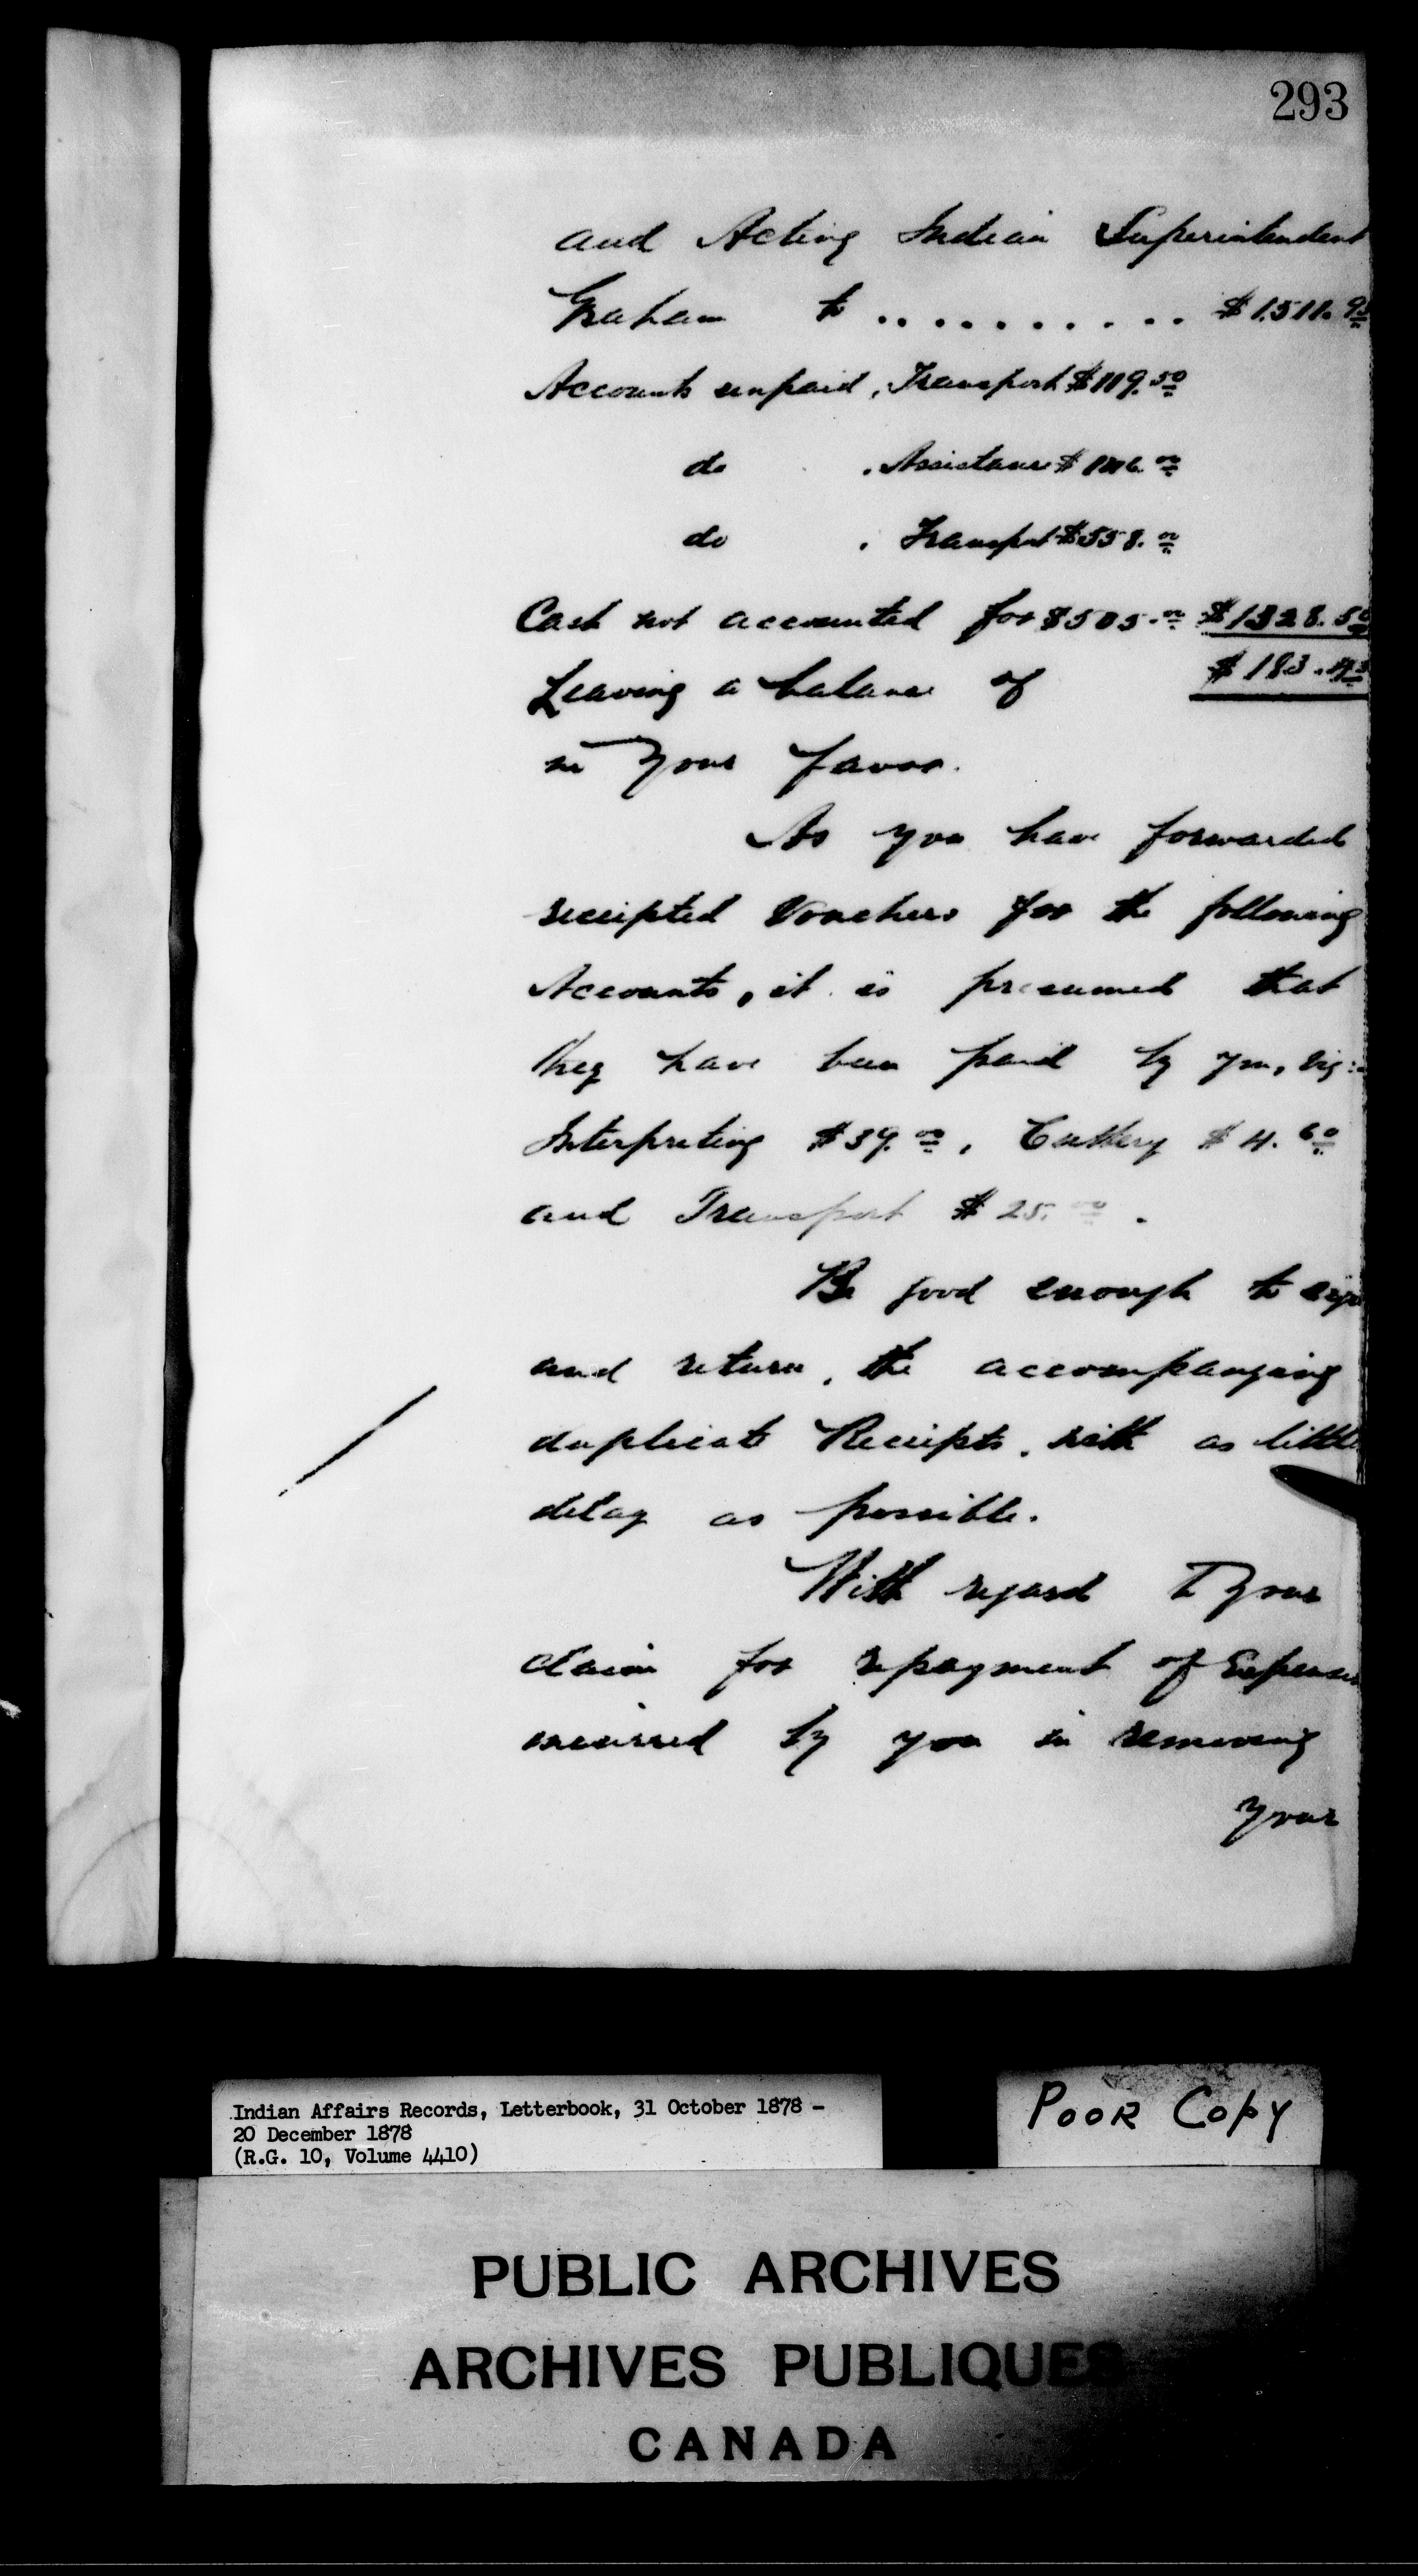 293
and Acting Indian Superintendent
Graham to .......... $1,511.93
Accounts unpaid, Transport $119.50
do . Assistance $146.00
do . Transport $558.00
Cash not accounted for $505.00 $1328.50
Leaving a balance of $183.43
in your favor.
As you have forwarded
receipted Vouchers for the following
Accounts, it is presumed that
they have been paid by you, viz:-
Interpreting $39.00, Cutlery $4.60
and Transport $25.00.
Be good enough to sign
and return, the accompanying
duplicate Receipts, with as little
delay as possible.
With regard to your
claim for repayment of Expenses
incurred by you in removing
your
Indian Affairs Records, Letterbook, 31 October 1878 -
20 December 1878
(R.G. 10, Volume 4410)
POOR COPY
PUBLIC ARCHIVES
ARCHIVES PUBLIQUES
CANADA